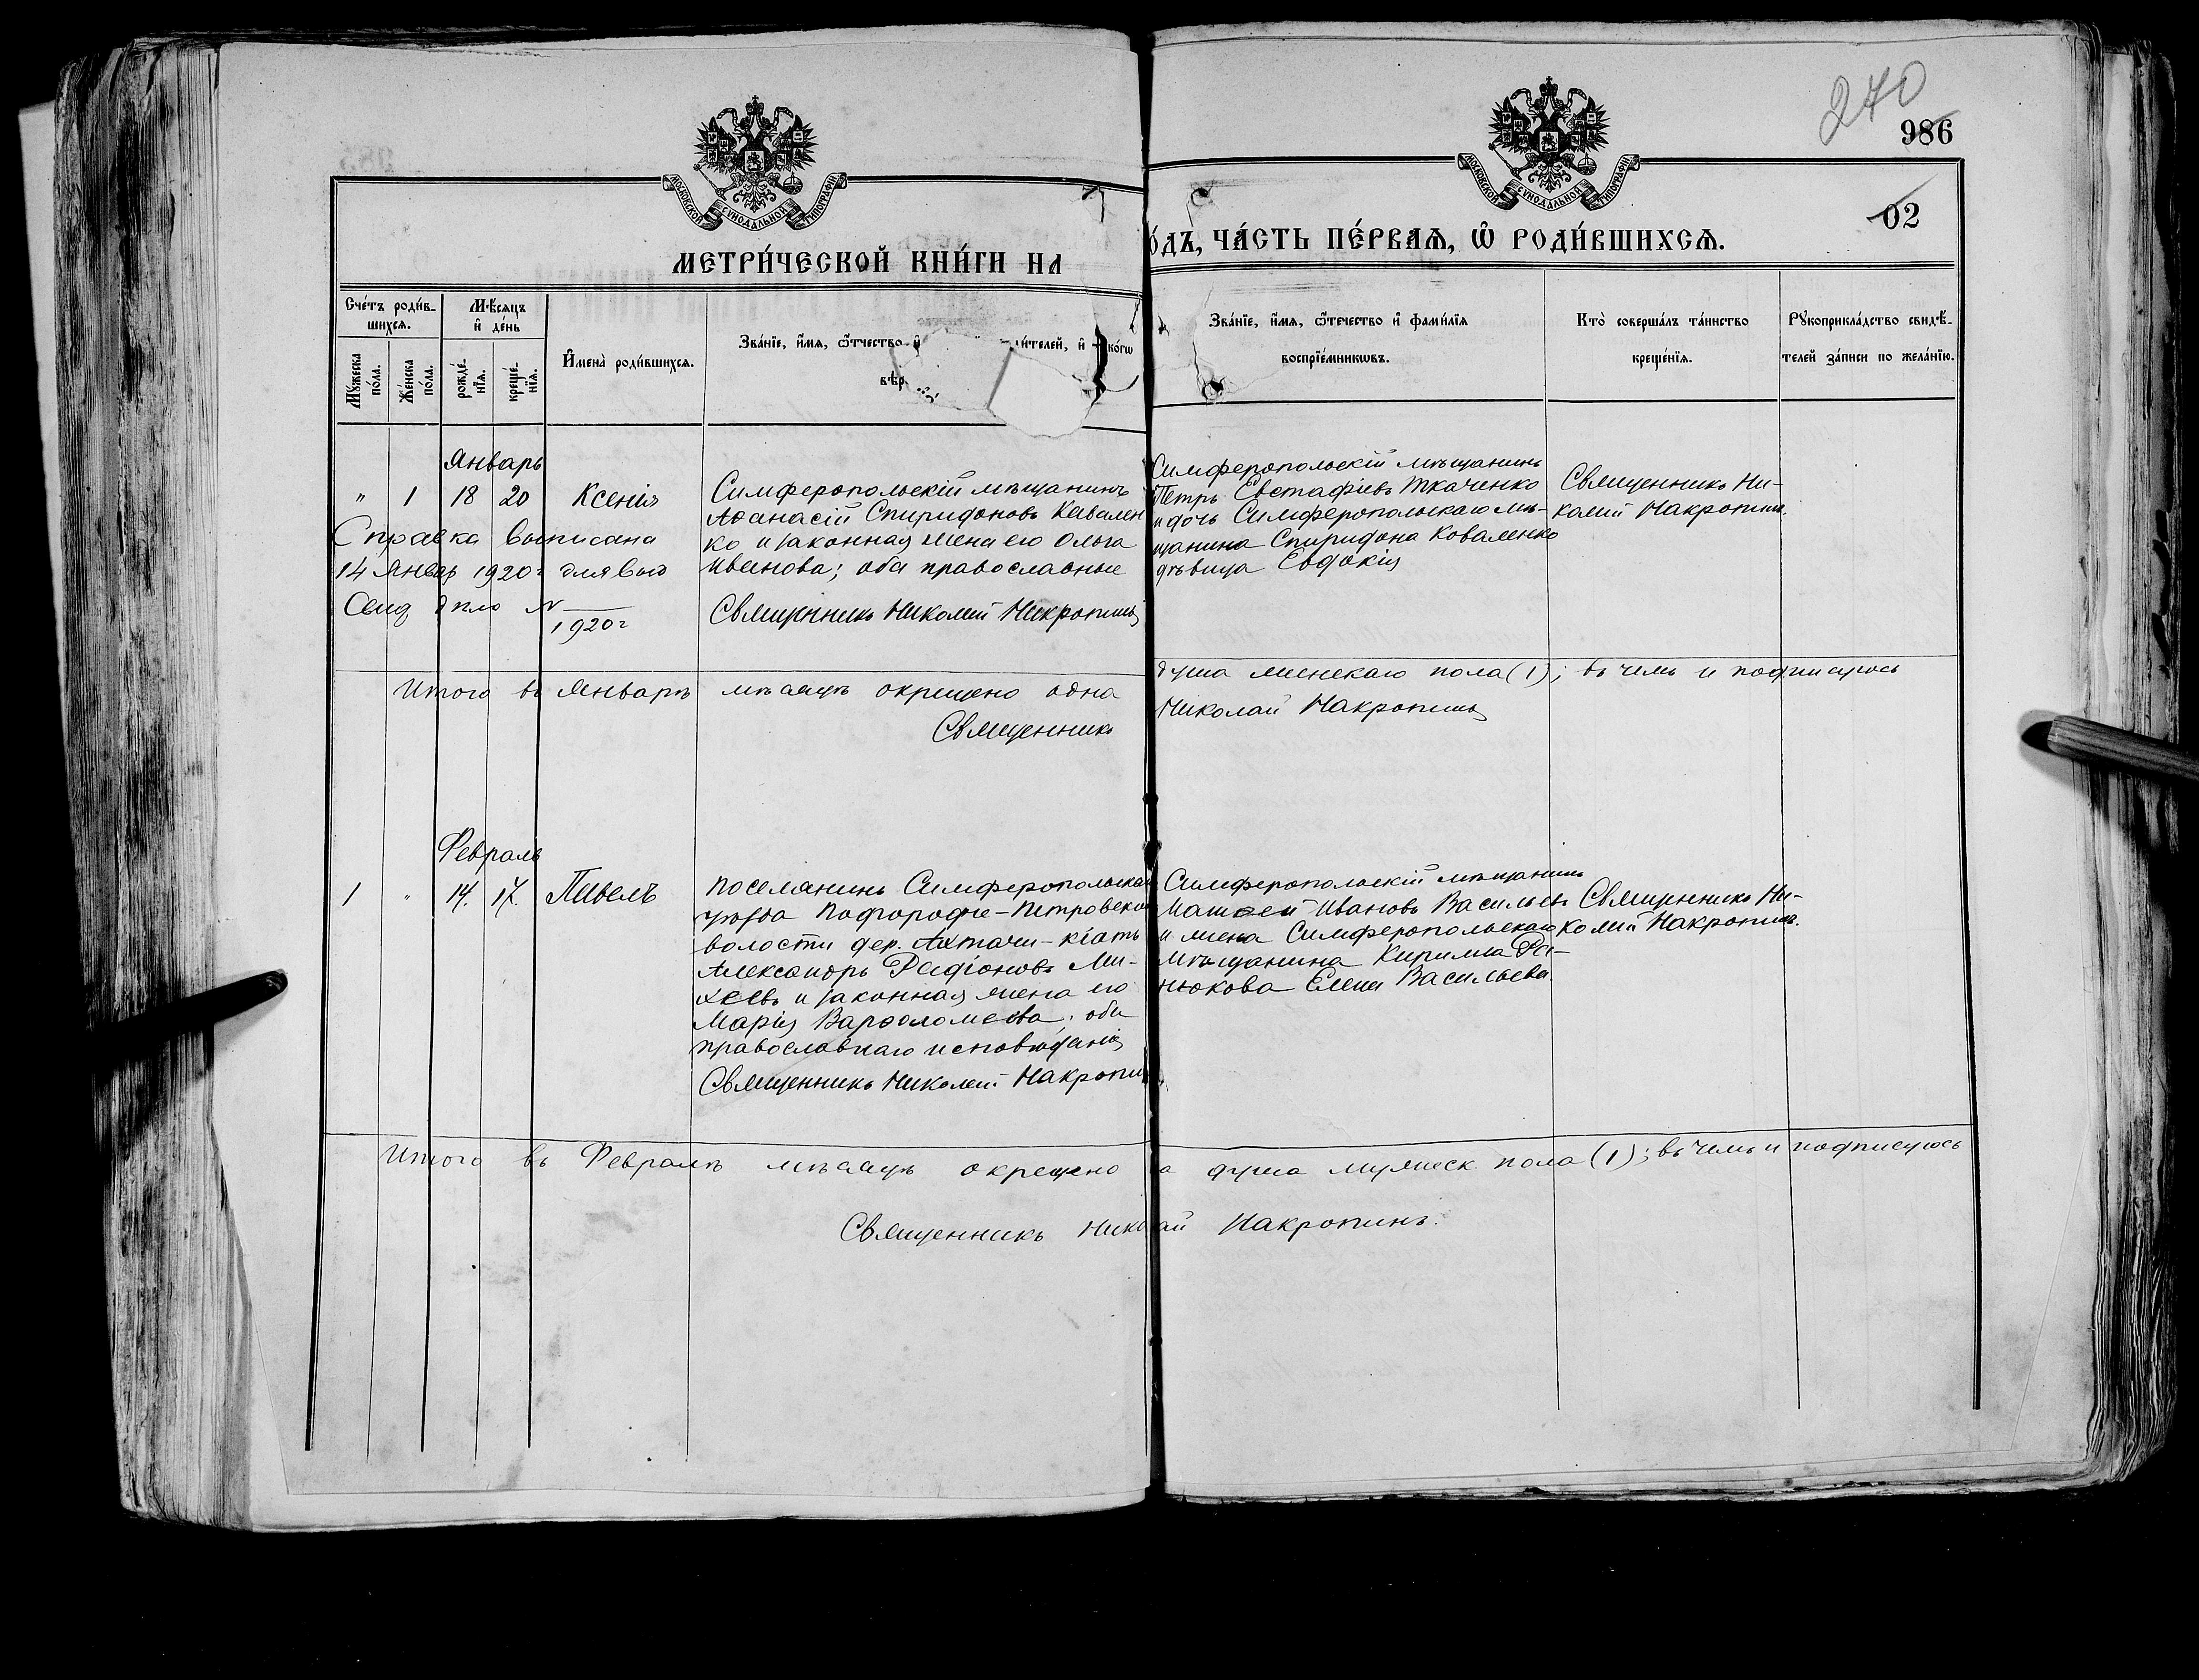 270
986
02
МОСКОВСКОЙ СУНОДАЛЬНОЙ ТИПОГРАФІИ
МОСКОВСКОЙ СУНОДАЛЬНОЙ ТИПОГРАФІИ
МЕТРИ́ЧЕСКОЙ КНИ́ГИ НА
О́ДЪ, ЧА́СТЬ ПЕ́РВАѦ, Ѡ҆ РОДИ́ВШИХСѦ.
Сче́тъ роди́в-
шихсѧ.
Мѣ́сѧцъ
и҆ де́нь
Мꙋ́жеска
по́ла.
Же́нска
по́ла.
рожде́-
нїѧ.
креще́-
нїѧ.
И҆мена̀ роди́вшихсѧ.
Зва́нїе, и҆́мѧ, ѻ҆́тчество и҆
и́телей, и҆ ко́гѡ
вѣр
Зва́нїе, и҆́мѧ, ѻ҆́течество и҆ фами́лїѧ
воспрїе́мникѡвъ.
Кто̀ соверша́лъ та́инство
креще́нїѧ.
Рꙋкоприкла́дство свидѣ́-
телей за́писи по жела́нїю.
Январь
" 1 18 20 Ксенія
Симферопольскій мѣщанинъ
Аѳанасій Спиридоновъ Ковален
ко и законная жена его Ольга
Иванова; оба православные
Священникъ Николай Накропинъ
Симферопольскій мѣщанинъ
Петръ Евстафіевъ Ткаченко
и дочь Симферопольскаго мѣ-
щанина Спиридона Коваленко
дѣвица Евдокія
Священникъ Ни-
колай Накропинъ.
Справка выписана
14 Январ 1920г для выд
N
1920г
Итого въ Январѣ мѣсяцѣ окрещено одна
душа женскаго пола (1); въ чемъ и подписуюсь
Священникъ
Николай Накропинъ
Февраль
1 " 14. 17. Павелъ
Поселянинъ Симферопольскаго
уѣзда Подгородне-Петровской
волости дер. Ахтачи-Кіатъ
Александръ Радіоновъ Ми-
хеевъ и законная жена его
Марія Варѳоломеева; оба
православнаго исповѣданія
Священникъ Николай Накропи
Симферопольскій мѣщанинъ
Матвей Ивановъ Васильевъ
и жена Симферопольскаго
мѣщанина Кирилла Фе-
нюкова Елена Васильева.
Священникъ Ни-
колай Накропинъ.
Итого въ Февралѣ мѣсяцѣ окрещено а душа мужеск. пола (1); въ чемъ и подписуюсь
Священникъ Николай Накропинъ.